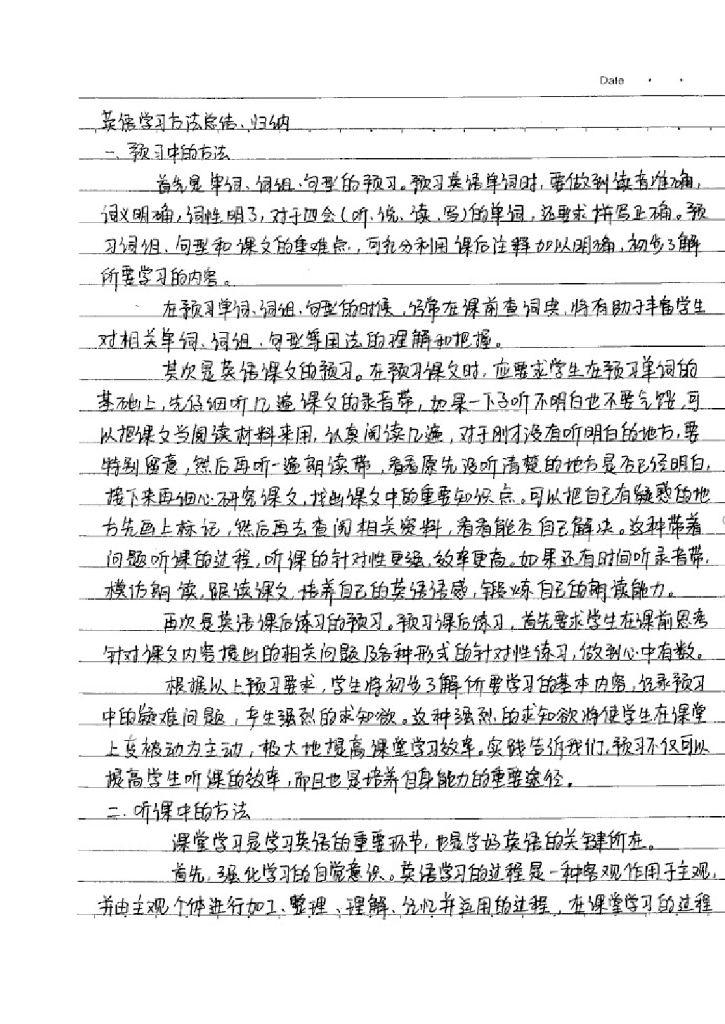 Date
英语学习方法总结、归纳
一、预习中的方法
首先是单词、词组、句型的预习。预习英语单词时,要做到读音准确,
词义明确,词性明了,对于四会(听、说、读、写)的单词,还要求拼写正确。预
习词组、句型和课文的重难点,可充分利用课后注释加以明确,初步了解
所要学习的内容。
在预习单词、词组、句型的时候,经常在课前查词典,将有助于丰富学生
对相关单词、词组、句型等用法的理解和把握。
其次是英语课文的预习。在预习课文时,应要求学生在预习单词的
基础上,先仔细听几遍课文的录音带,如果一下子听不明白也不要气馁,可
以把课文当阅读材料来用,认真阅读几遍,对于刚才没有听明白的地方,要
特别留意,然后再听一遍朗读带,看看原先没听清楚的地方是否已经明白,
接下来再细心研究课文,找出课文中的重要知识点。可以把自己有疑惑的地
方先画上标记,然后再去查阅相关资料,看看能否自己解决。这种带着
问题听课的过程,听课的针对性更强,效率更高。如果还有时间听录音带,
模仿朗读,跟读课文,培养自己的英语语感,锻炼自己的朗读能力。
再次是英语课后练习的预习。预习课后练习,首先要求学生在课前思考
针对课文内容提出的相关问题及各种形式的针对性练习,做到心中有数。
根据以上预习要求,学生将初步了解所要学习的基本内容,记录预习
中的疑难问题,产生强烈的求知欲。这种强烈的求知欲将使学生在课堂
上变被动为主动,极大地提高课堂学习效率。实践告诉我们,预习不仅可以
提高学生听课的效率,而且也是培养自身能力的重要途径。
二、听课中的方法
课堂学习是学习英语的重要环节,也是学好英语的关键所在。
首先,强化学习的自觉意识。英语学习的过程是一种客观作用于主观,
并由主观个体进行加工、整理、理解、记忆并运用的过程,在课堂学习的过程